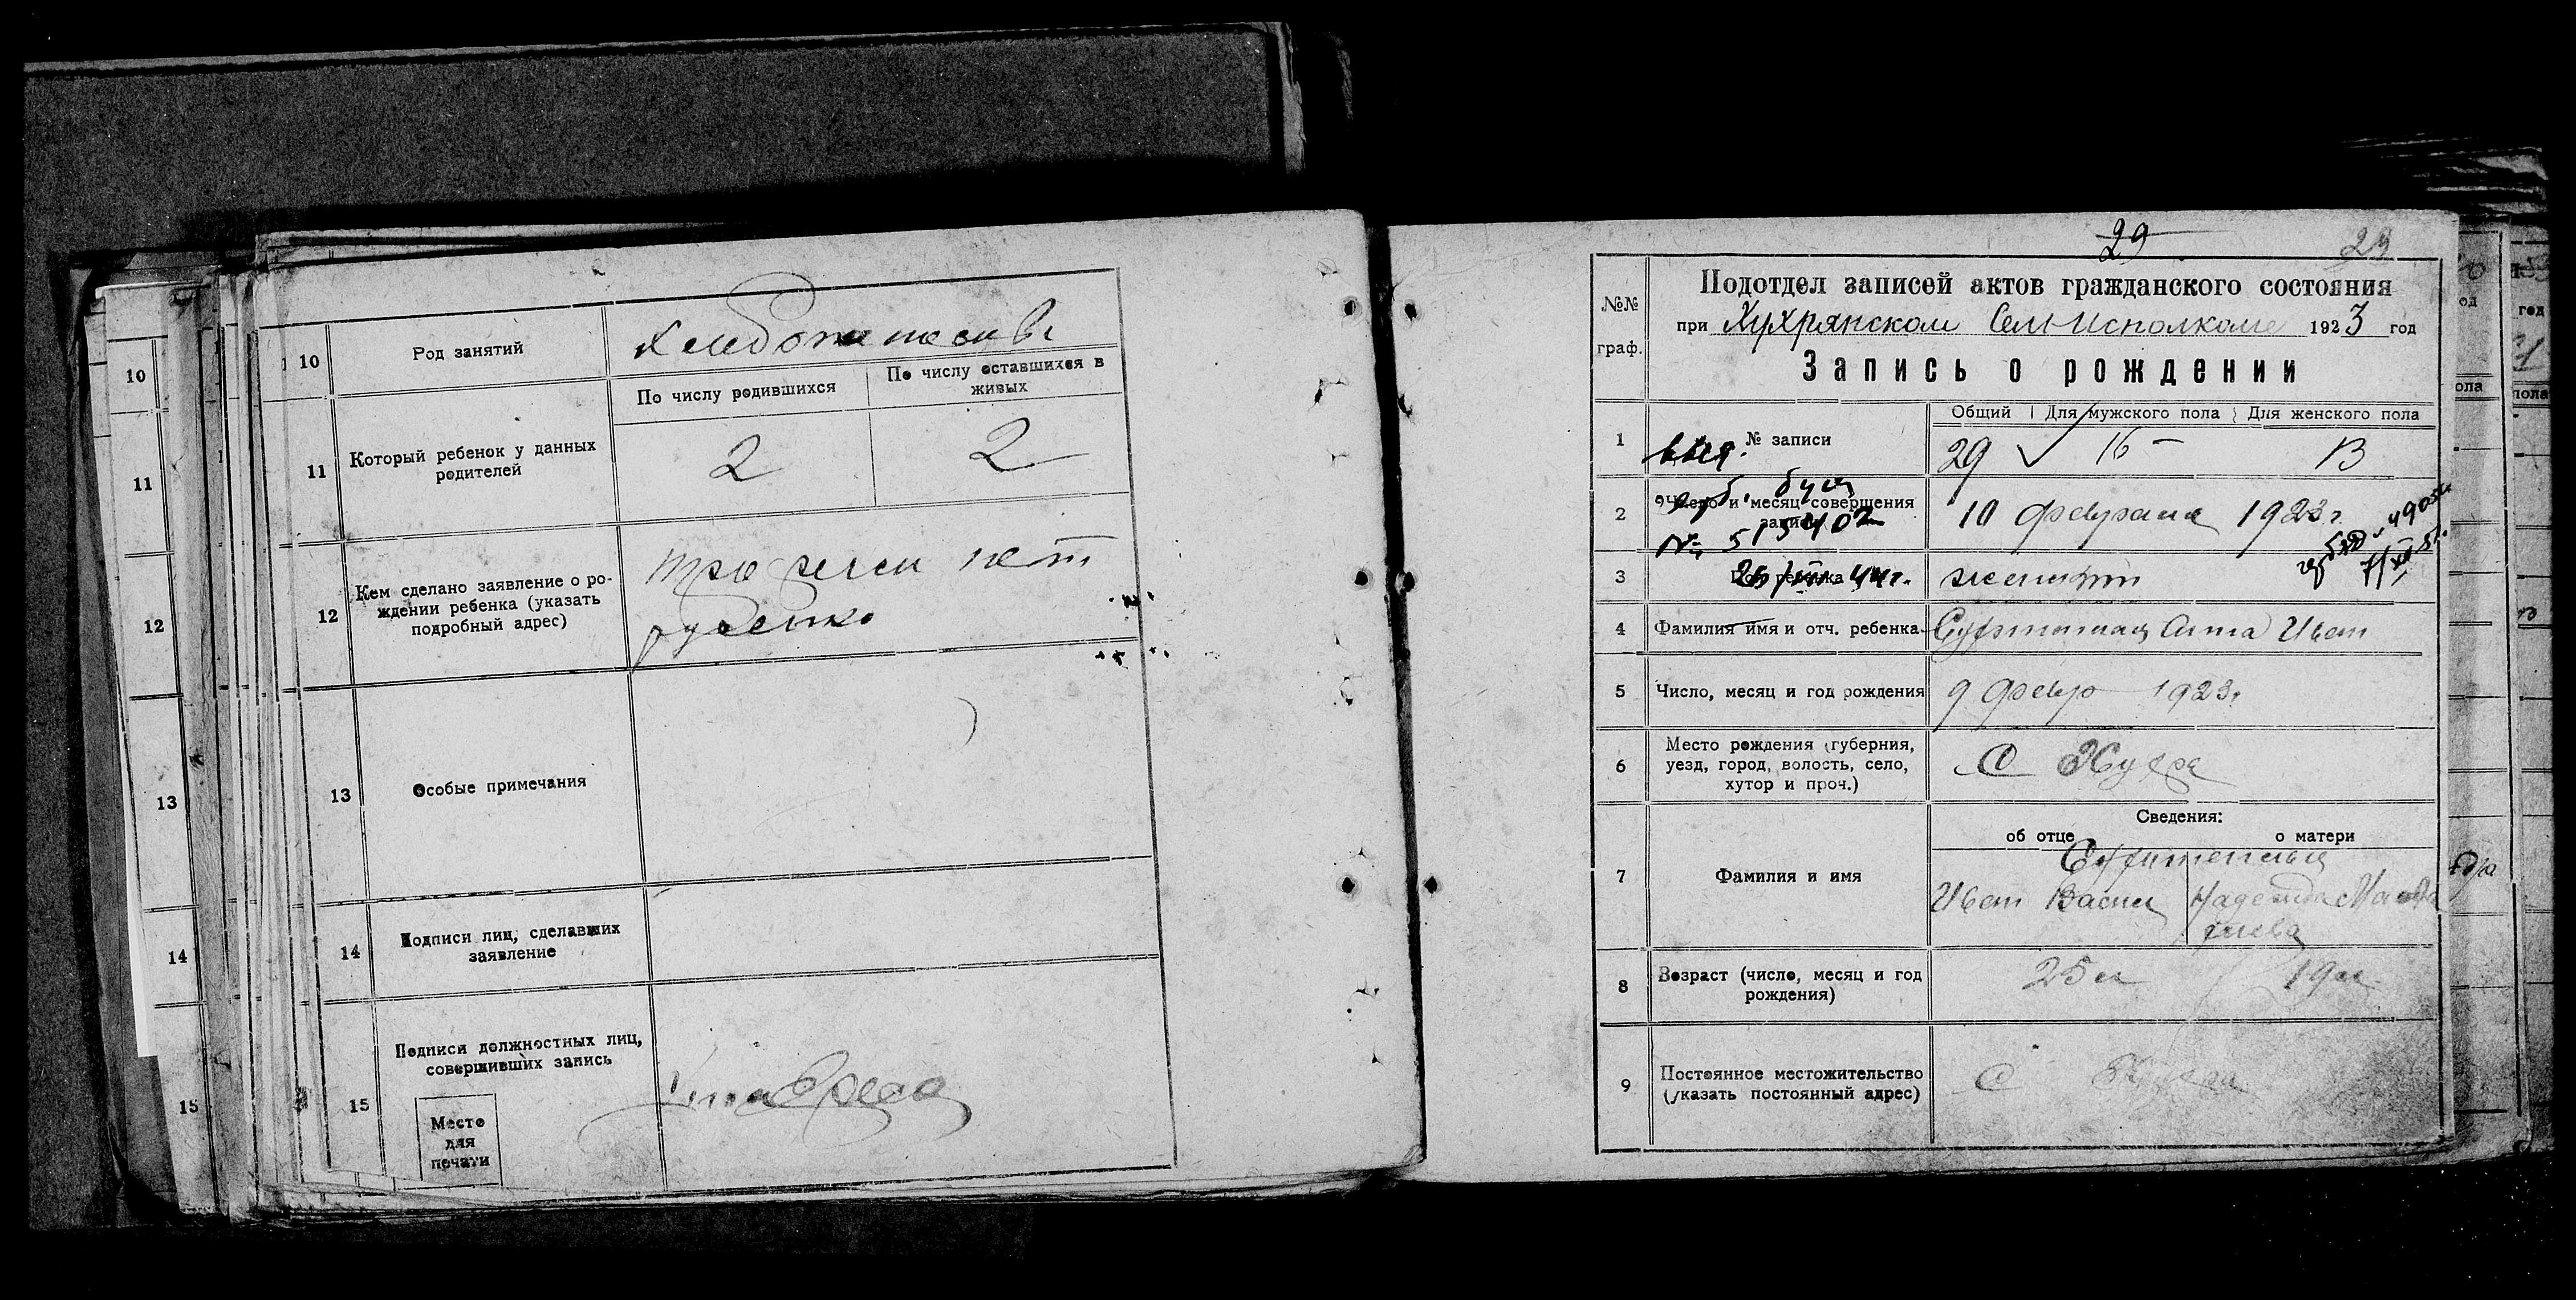 10
Род занятий
хлебопашество
11
Который ребенок у данных
родителей
По числу родившихся
По числу оставшихся в
живых
2
2
12
Кем сделано заявление о ро-
ждении ребенка (указать
подробный адрес)
13
Особые примечания
14
Подписи лиц, сделавших
заявление
15
Подписи должностных лиц,
совершивших запись
Место
для
печати
10
11
12
13
14
15
29
29
№№
граф.
Подотдел записей актов гражданского состояния
при Хухрянском Сельисполкоме 1923 год
Запись о рождении
1
№ записи
Общий
Для мужского пола
Для женского пола
29
16
13
2
Число и месяц совершения
записи
10 февраля 1923 г
№ 515402
3
Пол ребенка
4
Фамилия имя и отч. ребенка
Анна Иван
5
Число, месяц и год рождения
9 Февр 1923 г
6
Место рождения (губерния,
уезд, город, волость, село,
хутор и проч.)
С Хухра
7
Фамилия и имя
Сведения:
об отце
о матери
Иван Васил
Надежда
8
Возраст (число, месяц и год
рождения)
25 л
19 л
9
Постоянное местожительство
(указать постоянный адрес)
С Хухра